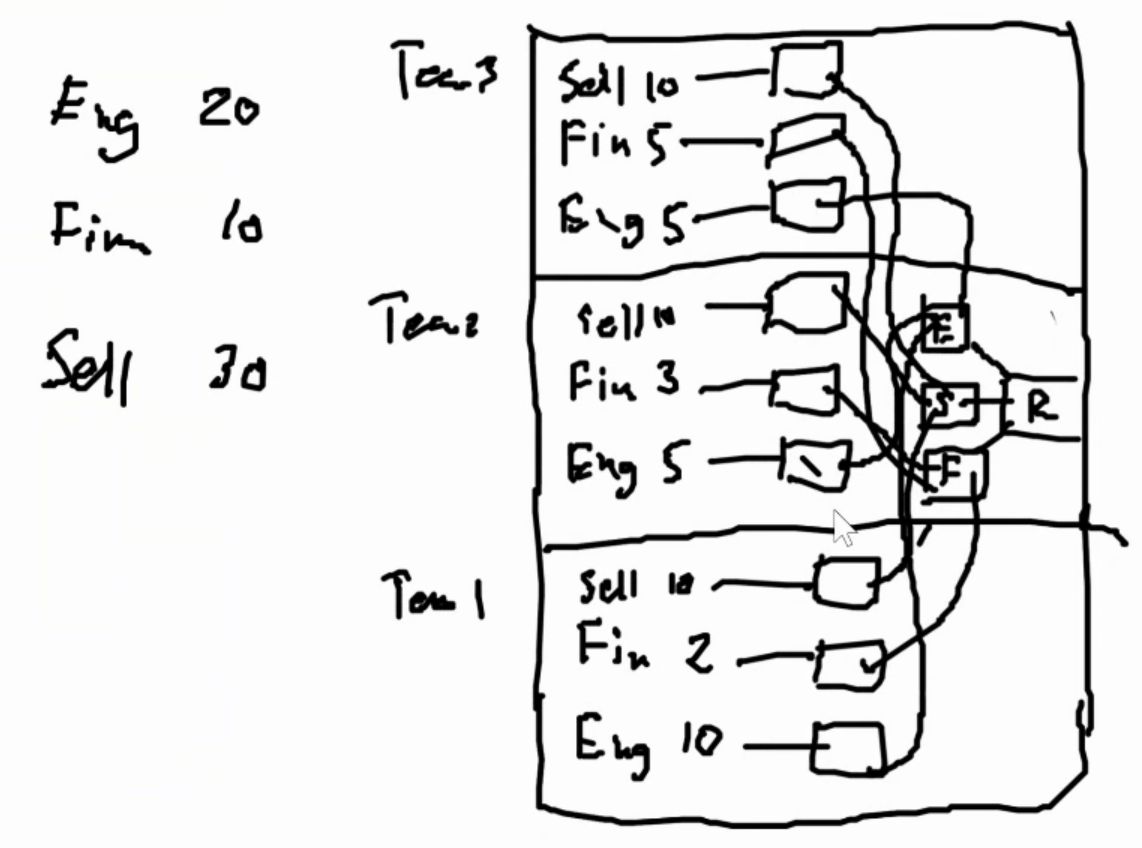 Eng 20
Fin 10
Sell 30
Team 3
Sell 10
Fin 5
Eng 5
Team 2
Sell 10
Fin 3
Eng 5
E
S
F
R
Team 1
Sell 10
Fin 2
Eng 10